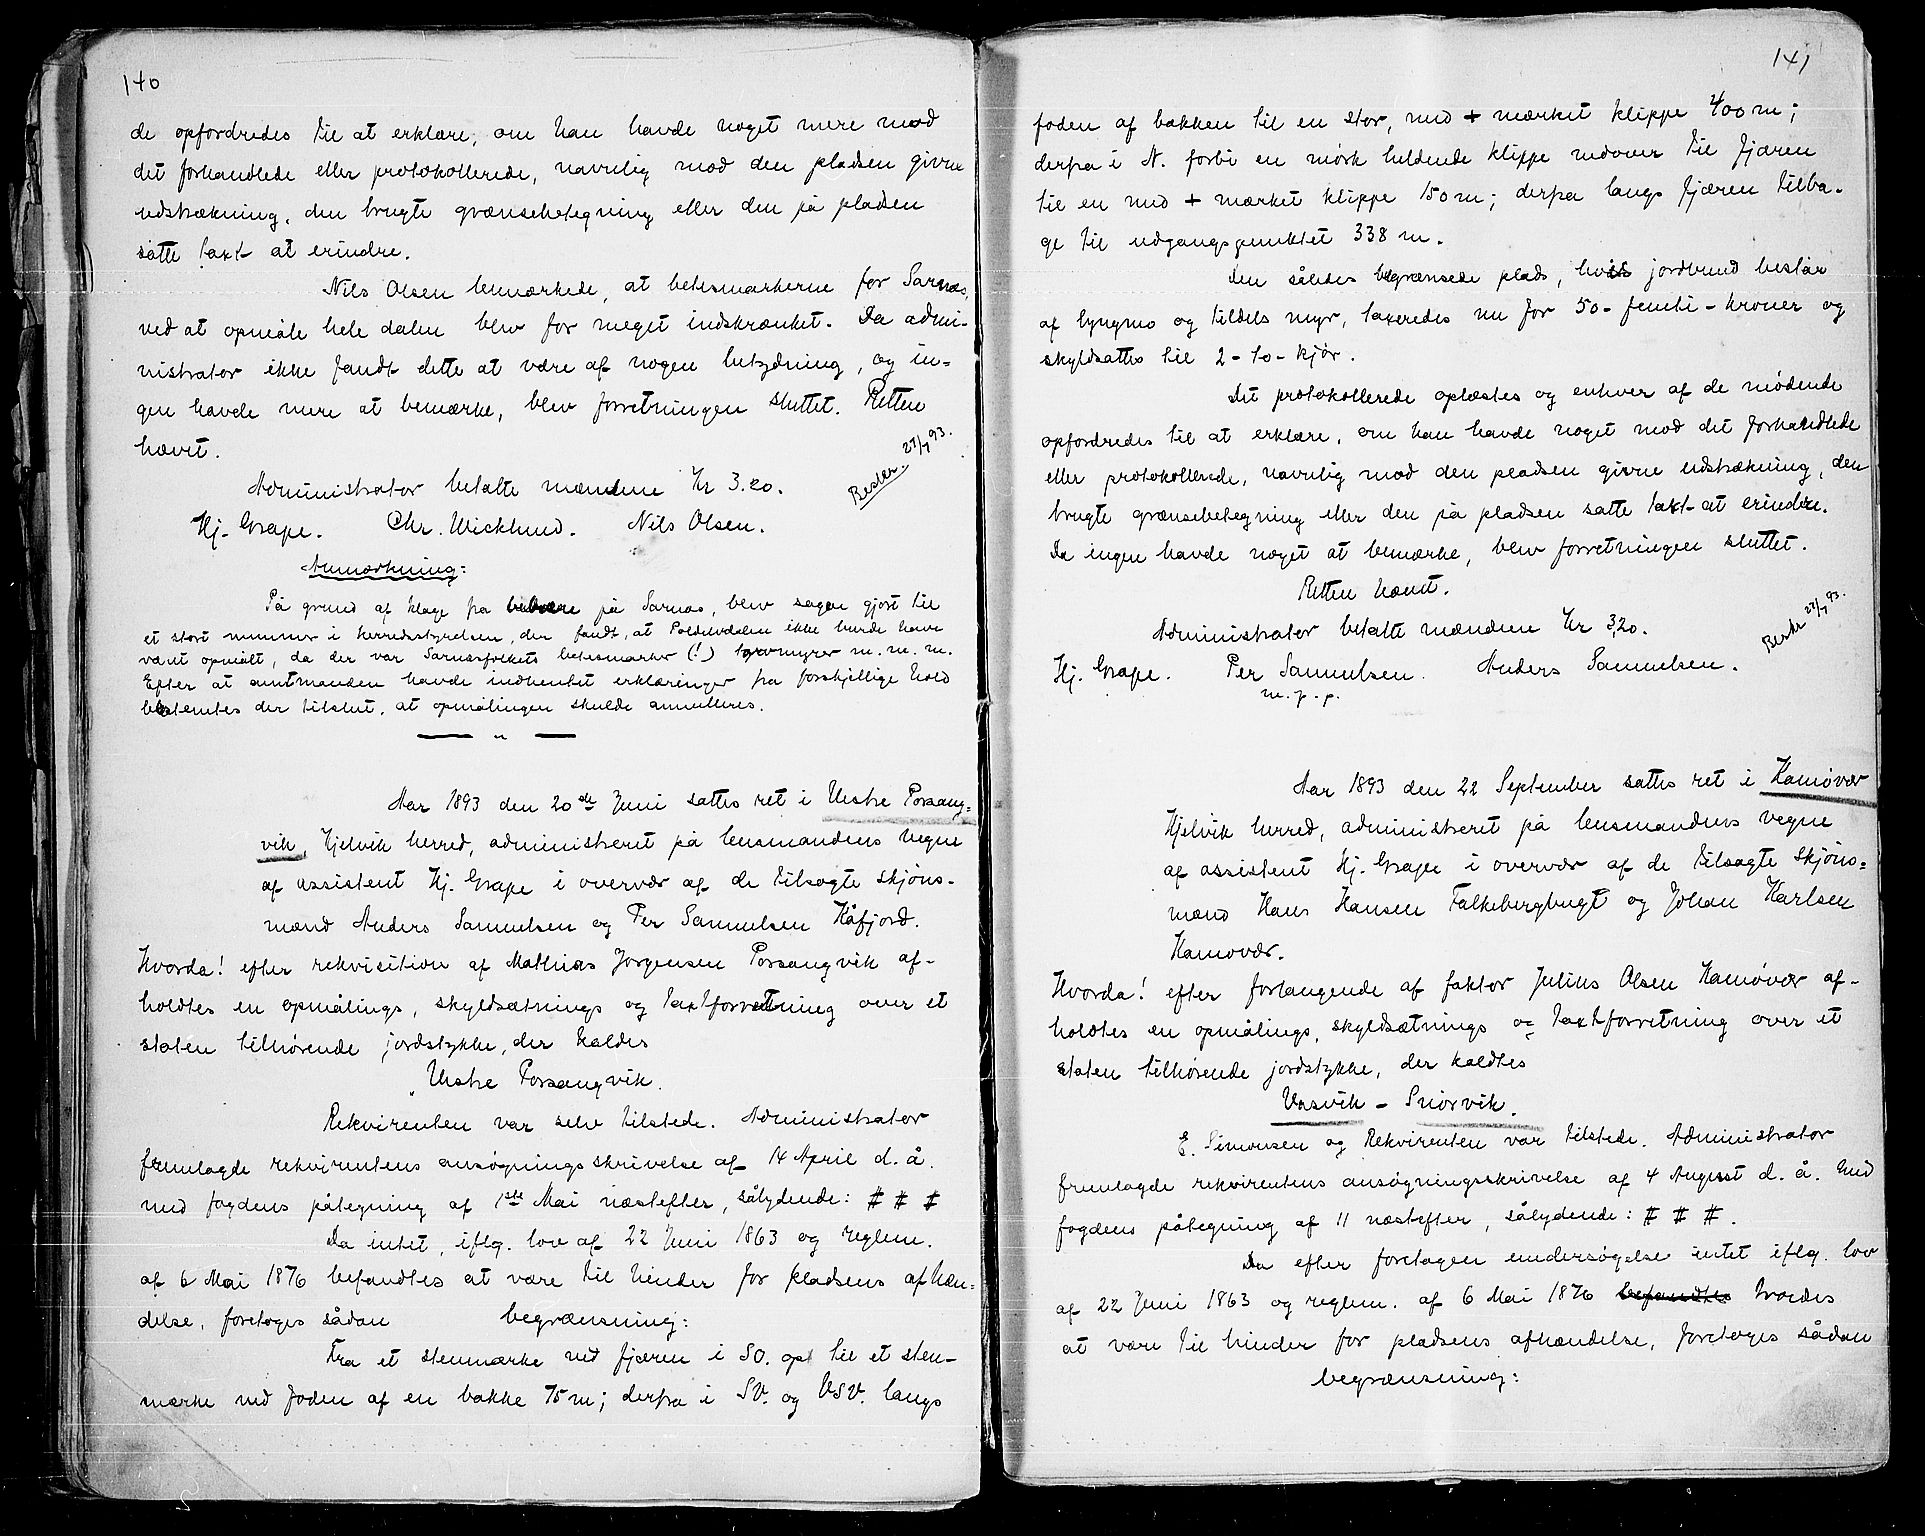 140
de opfordredes til at erklære, om han havde noget mere mod
det forhandlede eller protokollerede, navnlig mod den pladsen givne
udstrækning, den brugte grænsebetegning eller den på pladsen
satte taxt at erindre.
Nils Olsen bemærkede, at betesmarkerne for Sarnes,
ved at opmåle hele dalen blev for meget indskrænket. Da admi-
nistrator ikke fandt dette at være af nogen betydning, og in-
gen havde mere at bemærke, blev forretningen sluttet. Retten
hævet.
Administrator betalte mændene Kr 3.20.
Beskr. 27/7 93.
Hj. Grape. Chr. Wicklund. Nils Olsen.
Anmærkning:
På grund af klage fra beboere på Sarnes, blev sagen gjort til
et stort nummer i herredsstyrelsen, der fandt, at Poldelvdalen ikke burde have
været opmålt, da der var Sarnesfolkets betesmarker (!) torvmyrer m. m. m.
Efter at amtmanden havde indhentet erklæringer fra forskjellige hold
bestemtes der tilslut, at opmålingen skulde annulleres.
— " —
Aar 1893 den 20de Juni sattes ret i Vestre Porsang-
vik, Kjelvik herred, administreret på lensmandens vegne
af assistent Hj. Grape i overvær af de tilsagte skjøns-
mænd Anders Samuelsen og Per Samuelsen Kåfjord.
Hvorda! efter rekvisition af Mathias Jørgensen Porsangvik af-
holdtes en opmålings, skyldsætnings og taxtforretning over et
staten tilhørende jordstykke, der kaldes
Vestre Porsangvik.
Rekvirenten var selv tilstede. Administrator
fremlagde rekvirentens ansøgningsskrivelse af 14 April d. å.
med fogdens påtegning af 1ste Mai næstefter, sålydende: # # #
Da intet, iflg. lov af 22 Juni 1863 og reglem.
af 6 Mai 1876 befandtes at være til hinder for pladsens afhæn-
delse, foretoges sådan begrænsning:
Fra et stenmærke ved fjæren i SO. op til et sten-
mærke ved foden af en bakke 75 m; derfra i SV. og VSV. langs
141
foden af bakken til en stor, med + mærket klippe 400 m;
derfra i N. forbi en mørk heldende klippe nedover til fjæren
til en med + mærket klippe 150 m; derfra langs fjæren tilba-
ge til udgangspunktet 338 m.
Den således begrænsede plads, hvis jordbund består
af lyngmo og tildels myr, taxeredes nu for 50 - femti - kroner og
skyldsattes til 2 - to - kjør.
Det protokollerede oplæstes og enhver af de mødende
opfordredes til at erklære, om han havde noget mod det forhandlede
eller protokollerede, navnlig mod den pladsen givne udstrækning, den
brugte grænsebetegning eller den på pladsen satte taxt at erindre.
Da ingen havde noget at bemærke, blev forretningen sluttet.
Retten hævet.
Administrator betalte mændene Kr 3,20.
Beskr 27/7 93.
Hj. Grape. Per Samuelsen. Anders Samuelsen.
m. p. p.
Aar 1893 den 22 September sattes ret i Kamøvær
Kjelvik herred, administreret på lensmandens vegne
af assistent Hj. Grape i overvær af de tilsagte skjøns-
mænd Hans Hansen Falkebergbugt og Johan Karlsen
Kamøvær.
Hvorda! efter forlangende af faktor Julius Olsen Kamøvær af-
holdtes en opmålings, skyldsætnings og taxtforretning over et
staten tilhørende jordstykke, der kaldtes
Vasvik - Snorvik.
E. Simonsen og Rekvirenten var tilstede. Administrator
fremlagde rekvirentens ansøgningsskrivelse af 4 August d. å. med
fogdens påtegning af 11 næstefter, sålydende: # # #.
Da efter foretagen undersøgelse intet iflg. lov
af 22 Juni 1863 og reglem. af 6 Mai 1876 befandtes troedes
at være til hinder for pladsens afhændelse, foretoges sådan
begrænsning: